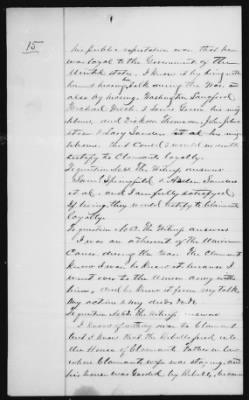 15
his public reputation was that he
was loyal to the Government of the
United States. I know it by being with
him & hearing talk during the War. &
also by having Washington Langford
Michael Wish & Lewis Green his neighbors
and Dickson Thomson John Johnston
& Lacy Sanders et al his neighbors
that could & would in
testify to Claimants loyalty.
To question No 61 The Witness answers
Springfield & Sanders
et al. and I am fully satisfied
if living they would testify to Claimants
loyalty.
To question No 62 The Witness answers
I was an adherent of the Union
Cause during the War. The Claimant
knew I was he knew it because I
went over to the Union army with
him, and he knew it from my talk
my action & my deeds
To question No 63 The Witness answers
I know of nothing was to Claimant
but I know that the Rebels fired into
the House of Claimants Father in law
where Claimants wife was staying, and
his house was guarded by Rebels, because